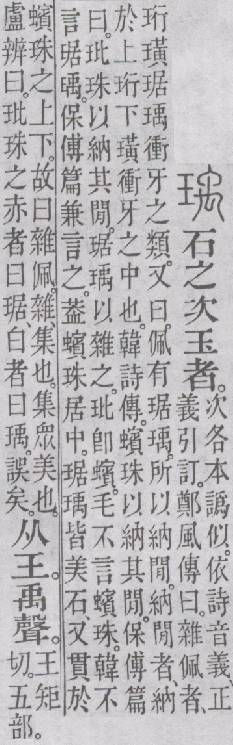 瑀石之次玉者。
次各本譌似。依詩音義、正
義引訂。鄭風傳曰。雜佩者、
珩璜琚瑀衝牙之類。又曰。佩有琚瑀。所以納閒。納閒者、納
於上珩下璜衝牙之中也。韓詩傳。蠙珠以納其閒。保傅篇
曰。玭珠以納其閒。琚瑀以雜之。玭卽蠙。毛不言蠙珠。韓不
言琚瑀。保傅篇兼言之。葢蠙珠居中。琚瑀皆美石、又貫於
蠙珠之上下。故曰雜佩。雜、集也。集衆美也。
盧辨曰。玭珠之赤者曰琚、白者曰瑀。誤矣。
从王。禹聲。
王矩
切。五部。